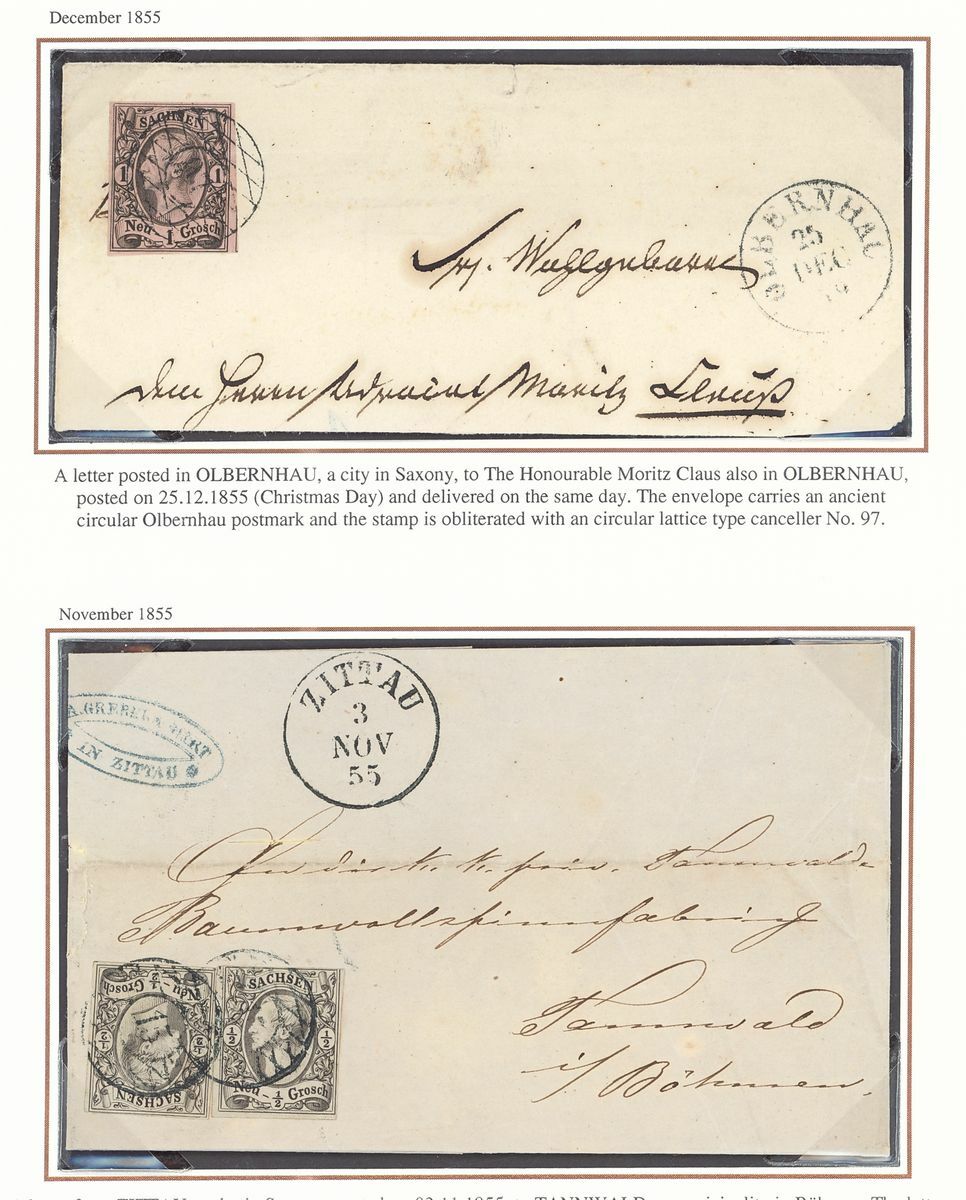 December 1855
SACHSEN
1 1
Neu- 1 Grosch
OLBERNHAU
25
DEC
Wohlgeboren
dem Herrn Moritz Clauß
A letter posted in OLBERNHAU, a city in Saxony, to The Honourable Moritz Claus also in OLBERNHAU,
posted on 25.12.1855 (Christmas Day) and delivered on the same day. The envelope carries an ancient
circular Olbernhau postmark and the stamp is obliterated with an circular lattice type canceller No. 97.
November 1855
ZITTAU
3
NOV
55
IN ZITTAU
An die k. k. priv. Tannwalde
Baumwollspinnfabrik
Tannwald
i/ Böhmen
Neu - ½ Grosch
½ ½
SACHSEN
SACHSEN
½ ½
Neu - ½ Grosch